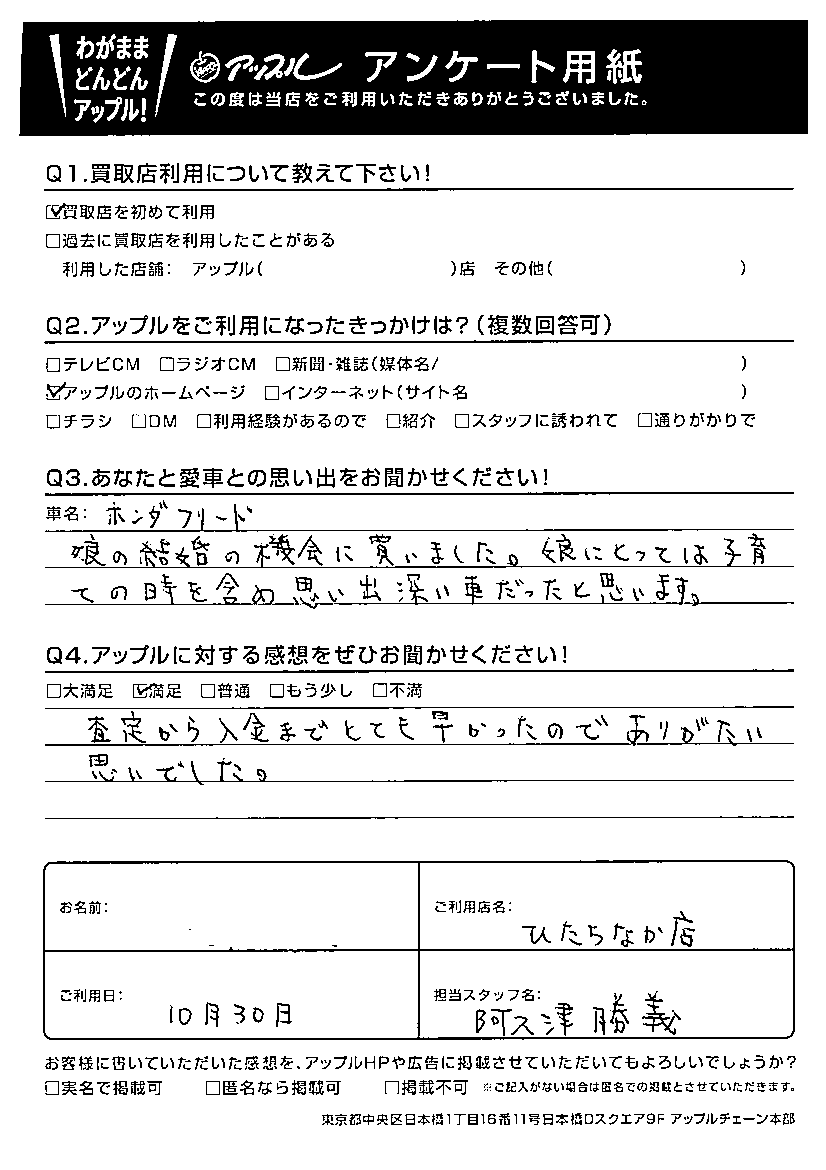 わがまま
どんどん
アップル!
アップル アンケート用紙
この度は当店をご利用いただきありがとうございました。
Q1.買取店利用について教えて下さい!
☑買取店を初めて利用
□過去に買取店を利用したことがある
利用した店舗: アップル( )店 その他( )
Q2.アップルをご利用になったきっかけは?(複数回答可)
□テレビCM □ラジオCM □新聞・雑誌(媒体名/ )
☑アップルのホームページ □インターネット(サイト名 )
□チラシ □DM □利用経験があるので □紹介 □スタッフに誘われて □通りがかりで
Q3.あなたと愛車との思い出をお聞かせください!
車名: ホンダフリード
娘の結婚の機会に買いました。娘にとっては子育
ての時を含め思い出深い車だったと思います。
Q4.アップルに対する感想をぜひお聞かせください!
□大満足 ☑満足 □普通 □もう少し □不満
査定から入金までとても早かったのでありがたい
思いでした。
お名前:
ご利用店名:
ひたちなか店
ご利用日:
10月30日
担当スタッフ名:
阿久津 勝義
お客様に書いていただいた感想を、アップルHPや広告に掲載させていただいてもよろしいでしょうか?
□実名で掲載可 □匿名なら掲載可 □掲載不可 ※ご記入がない場合は匿名での掲載とさせていただきます。
東京都中央区日本橋1丁目16番11号日本橋Dスクエア9F アップルチェーン本部